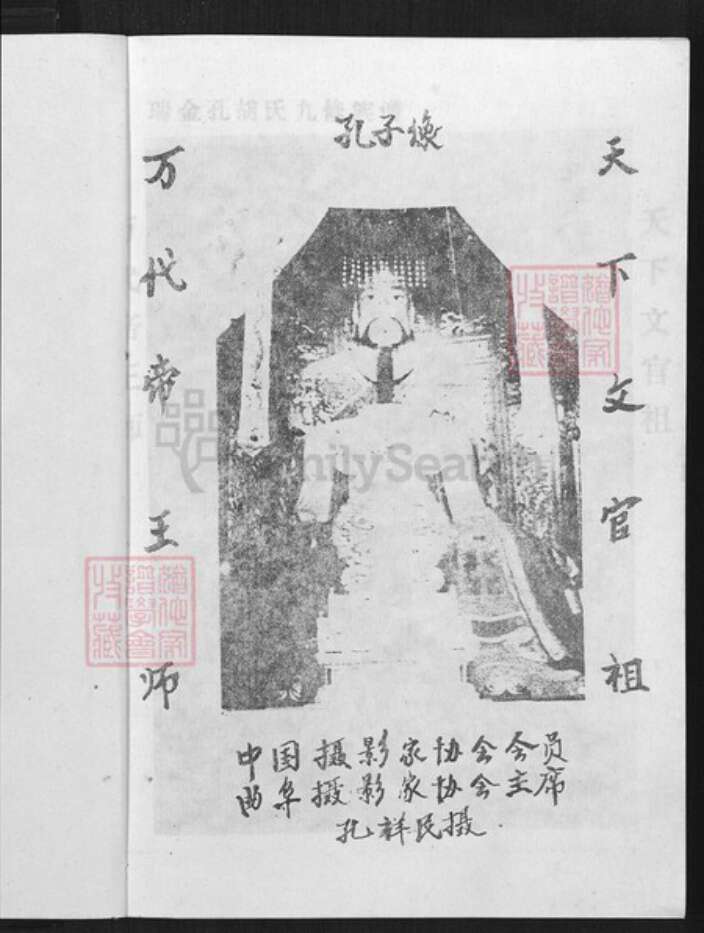 孔子像
天下文官祖
万代帝王师
中国摄影家协会会员
曲阜摄影家协会主席
孔祥民摄